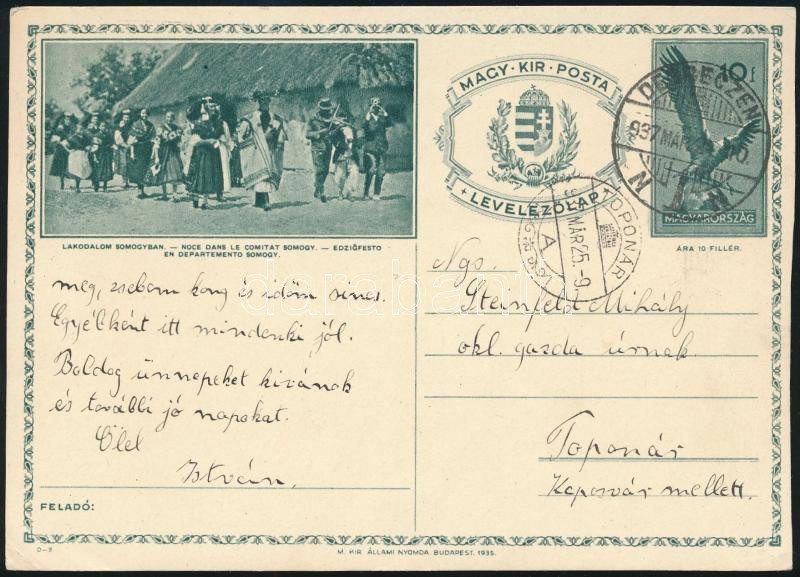 LAKODALOM SOMOGYBAN. — NOCE DANS LE COMITAT SOMOGY. — EDZIĜFESTO
EN DEPARTEMENTO SOMOGY.
meg, zsebem kong és időm sincs.
Egyébként itt mindenki jól.
Boldog ünnepeket kivánok
és további jó napokat.
Ölel
István.
FELADÓ:
D–8
MAGY · KIR · POSTA
LEVELEZŐLAP
10 f
MAGYARORSZÁG
ÁRA 10 FILLÉR.
DEBRECZEN
937 MÁR
TOPONÁR
MÁR 25.-9
A
Ngs.
Steinfeld Mihály
okl. gazda úrnak
Toponár
Kaposvár mellett.
M. KIR. ÁLLAMI NYOMDA. BUDAPEST. 1935.
darabanth